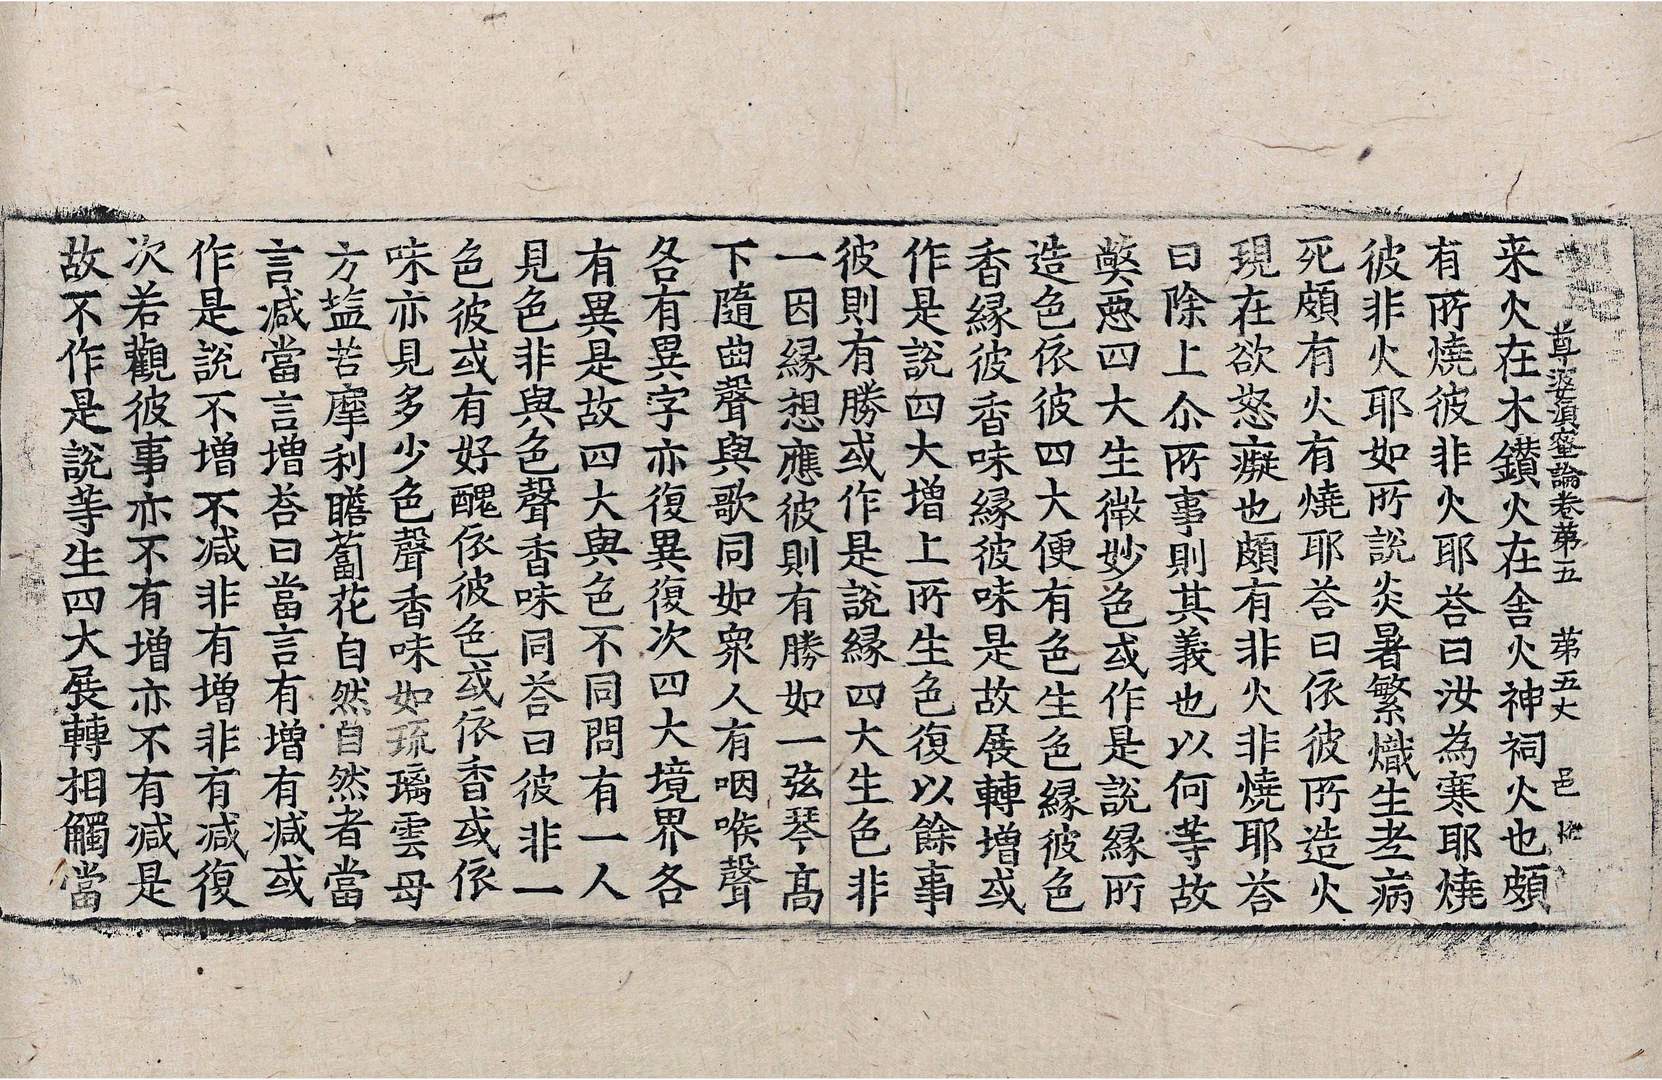 尊婆須蜜論卷苐五 苐五丈 邑
来火在木鑽火在舎火神祠火也頗
有所燒彼非火耶荅曰汝為寒耶燒
彼非火耶如所說炎暑繁熾生老病
死頗有火有燒耶荅曰依彼所造火
現在欲怒癡也頗有非火非燒耶荅
曰除上尒所事則其義也以何等故
獘惡四大生微妙色或作是說緣所
造色依彼四大便有色生色緣彼色
香緣彼香味緣彼味是故展轉增或
作是說四大增上所生色復以餘事
彼則有勝或作是說緣四大生色非
一因緣想應彼則有勝如一弦琴高
下隨曲聲與歌同如衆人有咽喉聲
各有異字亦復異復次四大境界各
有異是故四大與色不同問有一人
見色非與色聲香味同荅曰彼非一
色彼或有好醜依彼色或依香或依
味亦見多少色聲香味如琉璃雲母
方盐苦摩利瞻蔔花自然自然者當
言减當言增荅曰當言有增有减或
作是說不增不减非有增非有减復
次若觀彼事亦不有增亦不有减是
故不作是說等生四大展轉相觸當